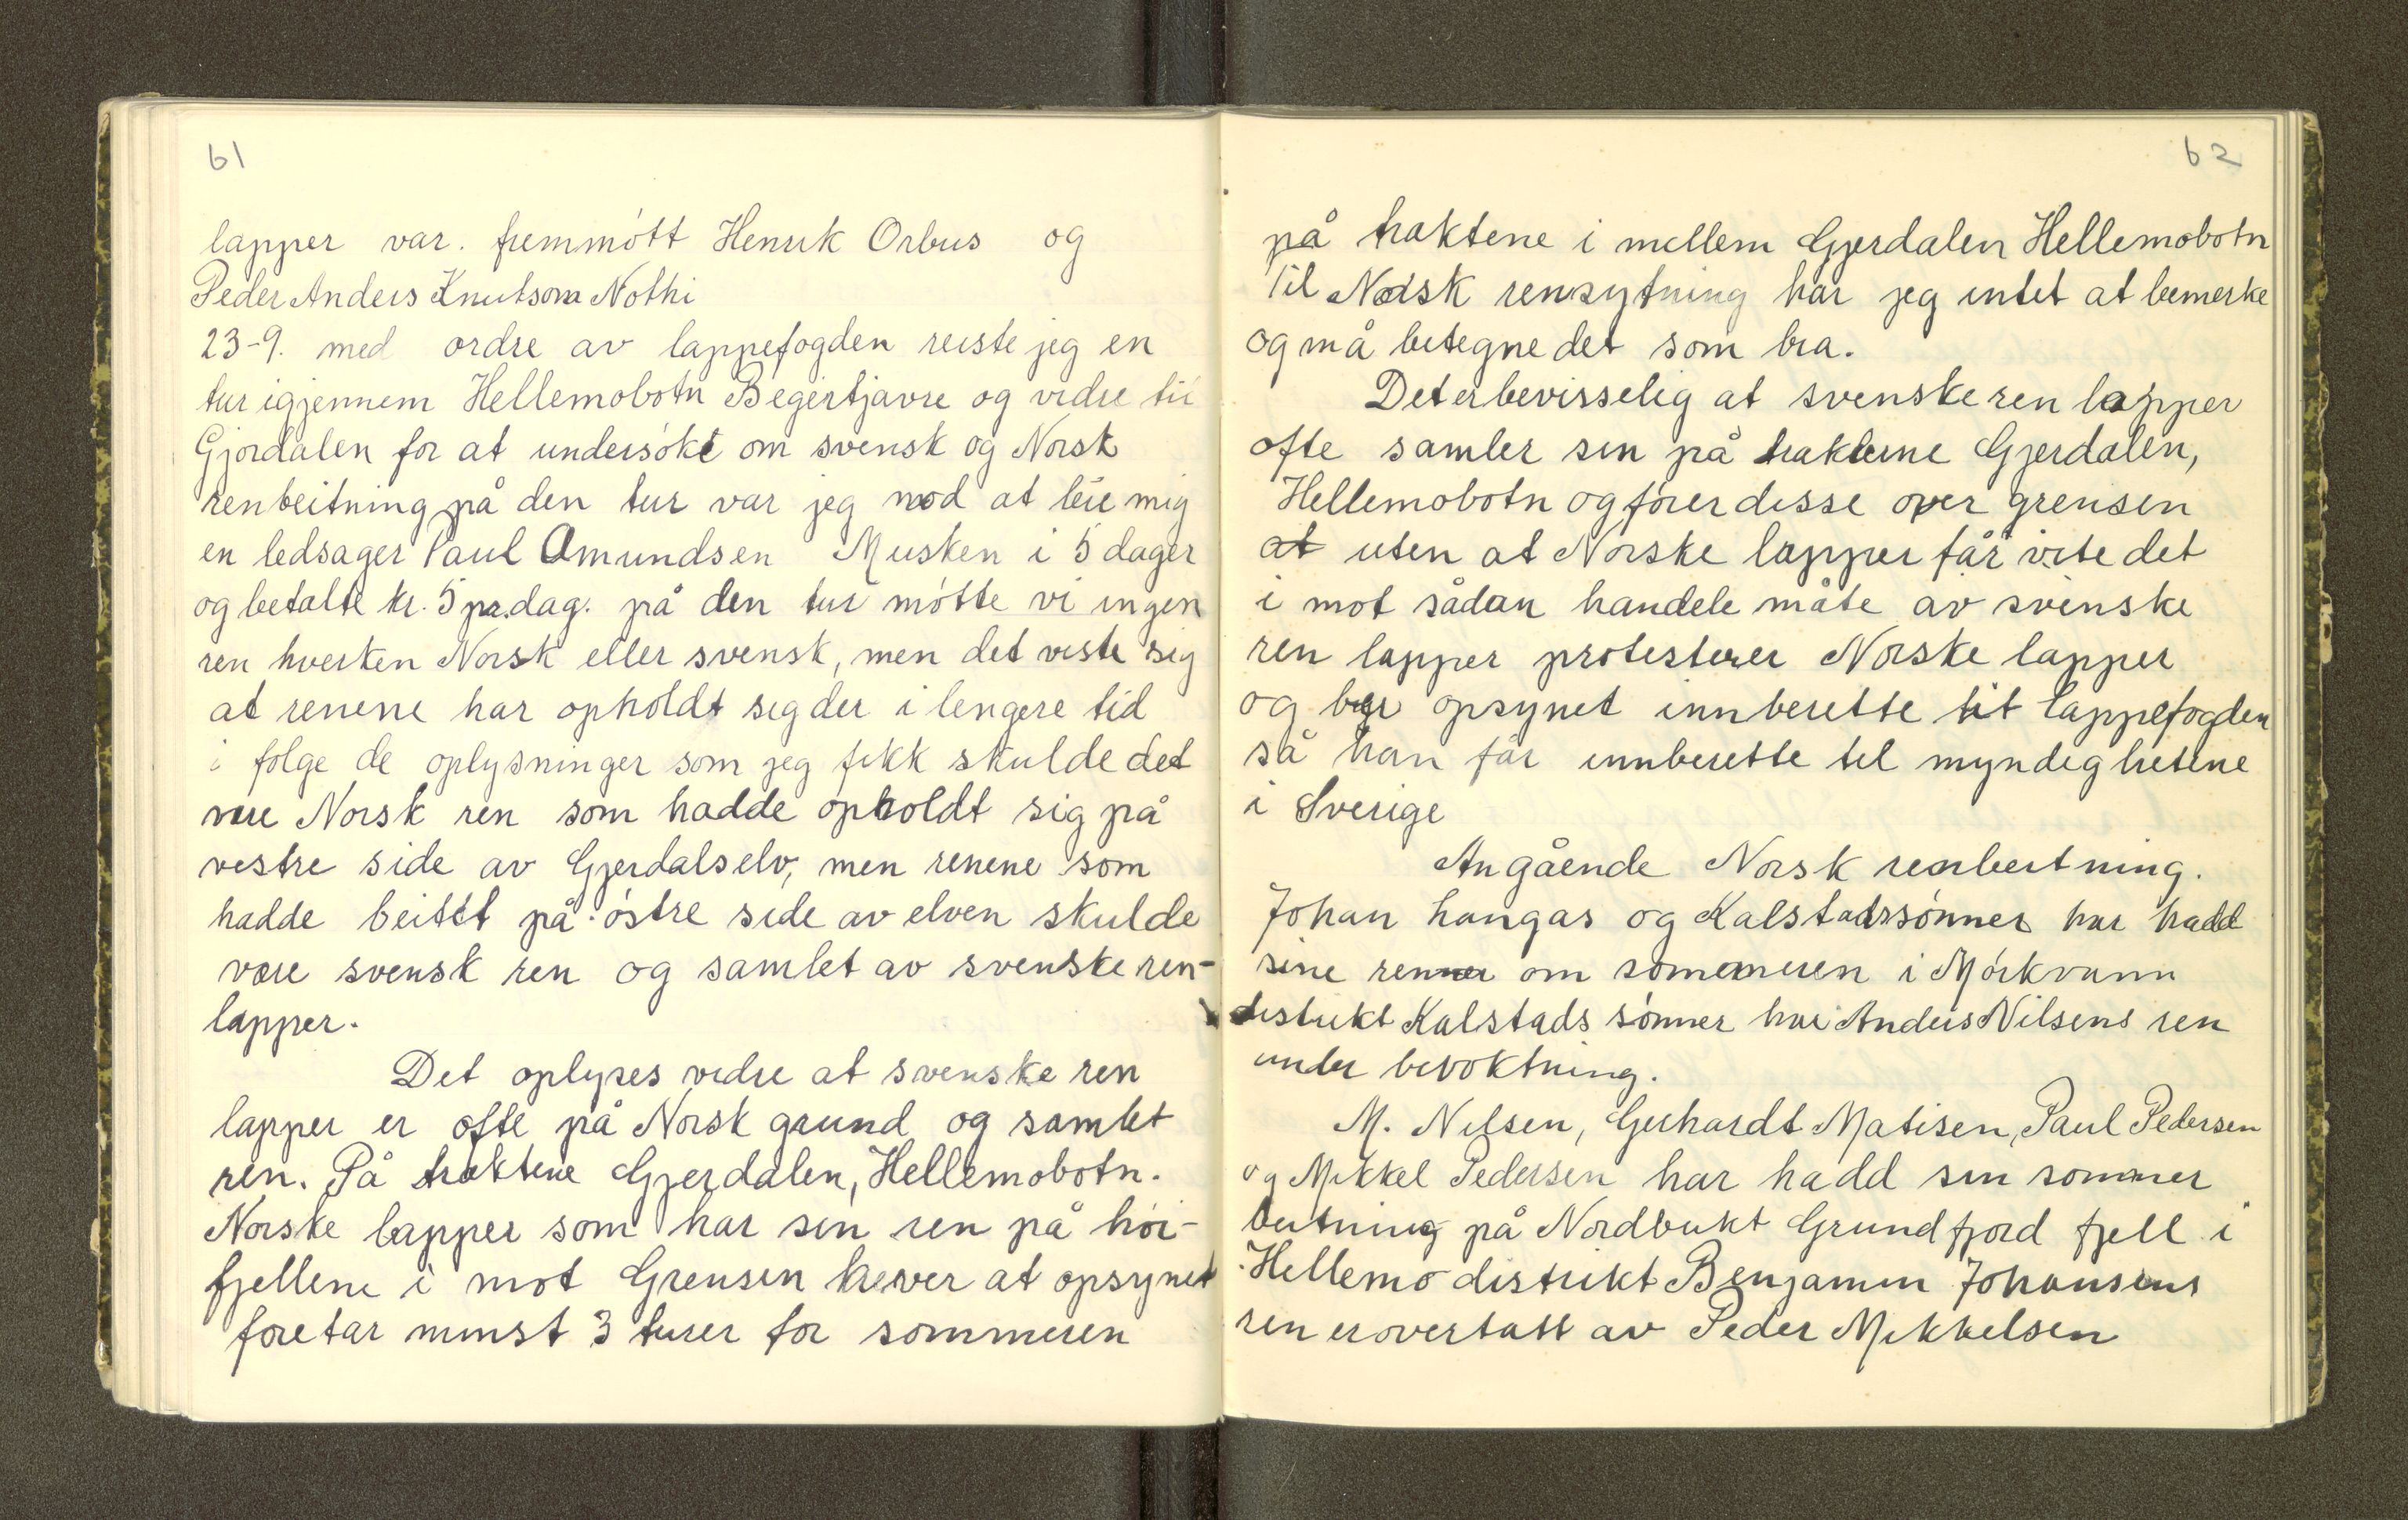 61
lapper var. fremmótt Henrik Orbus og
Peder Anders Knutson Nothi
23-9. med ordre av lappefogden reiste jeg en
tur igjennem Hellemobotn Begertjavre og vidre til
Gjordalen for at undersóke om svensk og Norsk
renbeitning på den tur var jeg nod at leie mig
en ledsager Paul Amundsen Musken i 5 dager
og betalte kr. 5 pr. dag. på den tur mótte vi ingen
ren hverken Norsk eller svensk, men det viste sig
at renene har opholdt sig der i lengere tid
i folge de oplysninger som jeg fikk skulde det
vere Norsk ren som hadde opholdt sig på
vestre side av Gjerdalselv, men renene som
hadde beitet på óstre side av elven skulde
vere svensk ren og samlet av svenske ren-
lapper.
Det oplyses vidre at svenske ren
lapper er ofte på Norsk grund og samlet
ren. På traktene Gjerdalen, Hellemobotn.
Norske lapper som har sin ren på hói-
fjellene i mot Grensen krever at opsynet
foretar minst 3 turer for sommeren
62
på traktene i mellem Gjerdalen Hellemobotn
Til Nodsk rensytning har jeg intet at bemerke
og må betegne det som bra.
Det er bevisselig at svenske ren lapper
ofte samler sin på trakterne Gjerdalen,
Hellemobotn og fórer disse over grensen
at uten at Norske lapper får vite det
i mot sådan handele måte av svenske
ren lapper protesterer Norske lapper
og ber opsynet innberette tit lappefogden
så han får innberette til myndighetene
i Sverige
Angående Norsk renbeitning.
Johan hangas og Kalstadssónner har hadd
sine renner om somemeren i Mórkvann
distrikt Kalstads sónner har Anders Nilsens ren
under bevoktning.
M. Nilsen, Gerhardt Matisen, Paul Pedersen
og Mikkel Pedersen har hadd sin sommer
beitning på Nordbukt Grundfjord fjell i
Hellemo distrikt Benjamin Johansens
ren er overtatt av Peder Mikkelsen